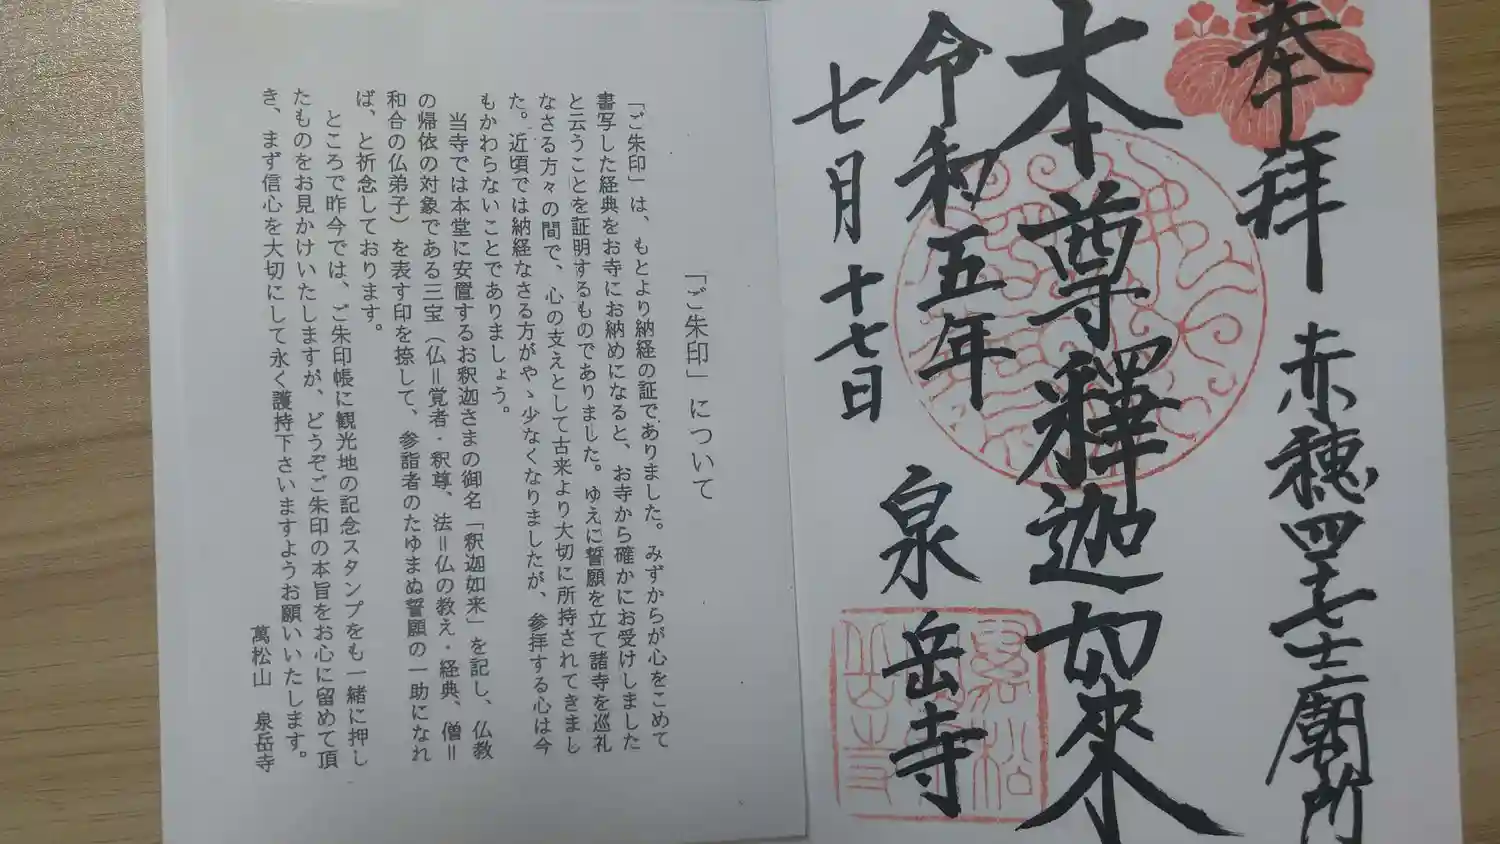 奉拝
赤穂四十七士廟所
本尊釋迦如来
令和五年
七月十七日
泉岳寺
「ご朱印」について
「ご朱印」は、もとより納経の証でありました。みずからが心をこめて
書写した経典をお寺にお納めになると、お寺から確かにお受けしました
と云うことを証明するものでありました。ゆえに誓願を立て諸寺を巡礼
なさる方々の間で、心の支えとして古来より大切に所持されてきまし
た。近頃では納経なさる方がやゝ少なくなりましたが、参拝する心は今
もかわらないことでありましょう。
当寺では本堂に安置するお釈迦さまの御名「釈迦如来」を記し、仏教
の帰依の対象である三宝（仏＝覚者・釈尊、法＝仏の教え・経典、僧＝
和合の仏弟子）を表す印を捺して、参詣者のたゆまぬ誓願の一助になれ
ば、と祈念しております。
ところで昨今では、ご朱印帳に観光地の記念スタンプをも一緒に押し
たものをお見かけいたしますが、どうぞご朱印の本旨をお心に留めて頂
き、まず信心を大切にして永く護持下さいますようお願いいたします。
萬松山　泉岳寺